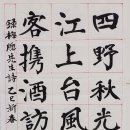 四野秋光
江上台風
客携酒訪
先生詩乙巳新春